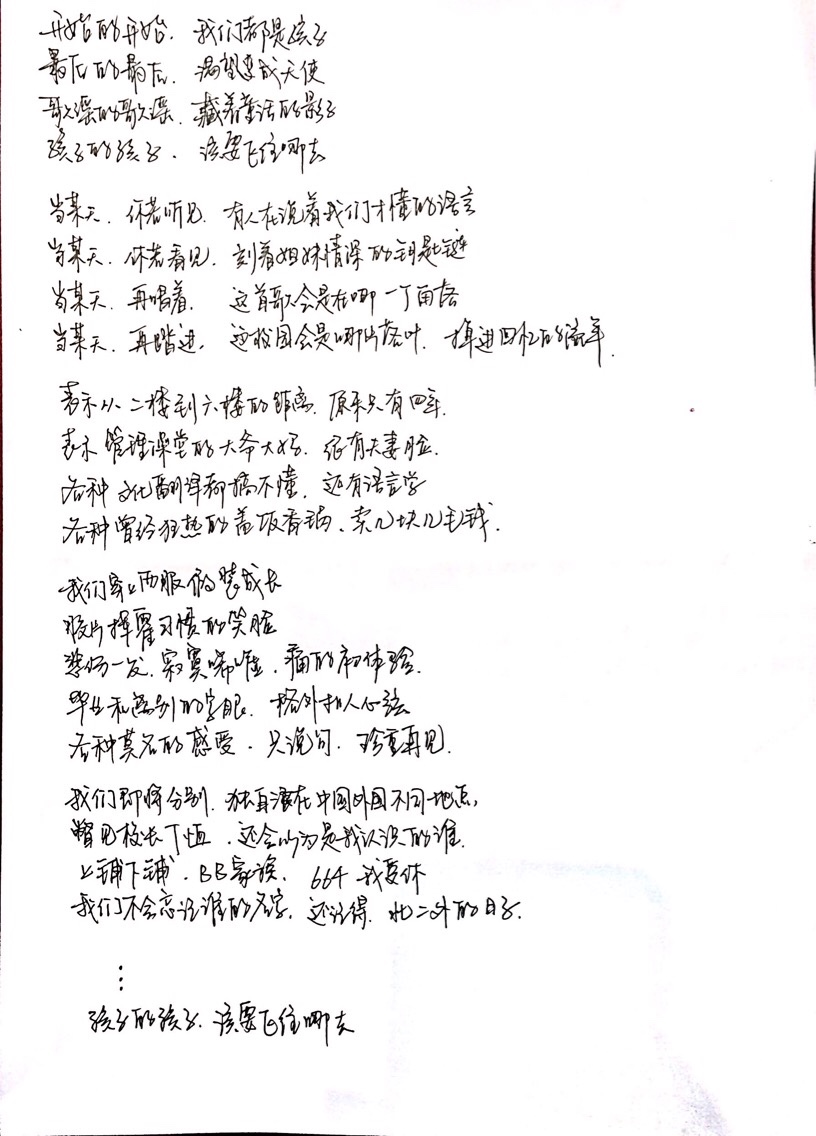 开始的开始, 我们都是孩子
最后的最后, 渴望变成天使
歌谣的歌谣, 藏着童话的影子
孩子的孩子, 该要飞往哪去
当某天, 你若听见, 有人在说着我们才懂的语言
当某天, 你若看见, 刻着姐妹情深的钥匙链
当某天, 再唱着, 这首歌会是在哪一个角落
当某天, 再踏进, 这校园会是哪片落叶, 掉进回忆的流年.
表示从二楼到六楼的距离, 原来只有四年.
表示管理课堂的大爷大妈, 很有夫妻脸.
各种文化翻译都搞不懂, 还有语言学
各种曾经狂热的盖饭香锅, 卖几块几毛钱.
我们穿上西服伪装成长
胶片挥霍习惯的笑脸
悲伤一发, 寂寞唏嘘, 痛的初体验.
毕业和离别的字眼, 格外扣人心弦
各种莫名的感受, 只说句, 珍重再见.
我们即将分别, 独自漂在中国外国不同地点,
瞥见校长丁恒, 还会以为是我认识的谁.
上铺下铺, BB家族, 664 我爱你
我们不会忘记谁的名字, 还记得, 北二外的日子.
⋮
孩子的孩子, 该要飞往哪去